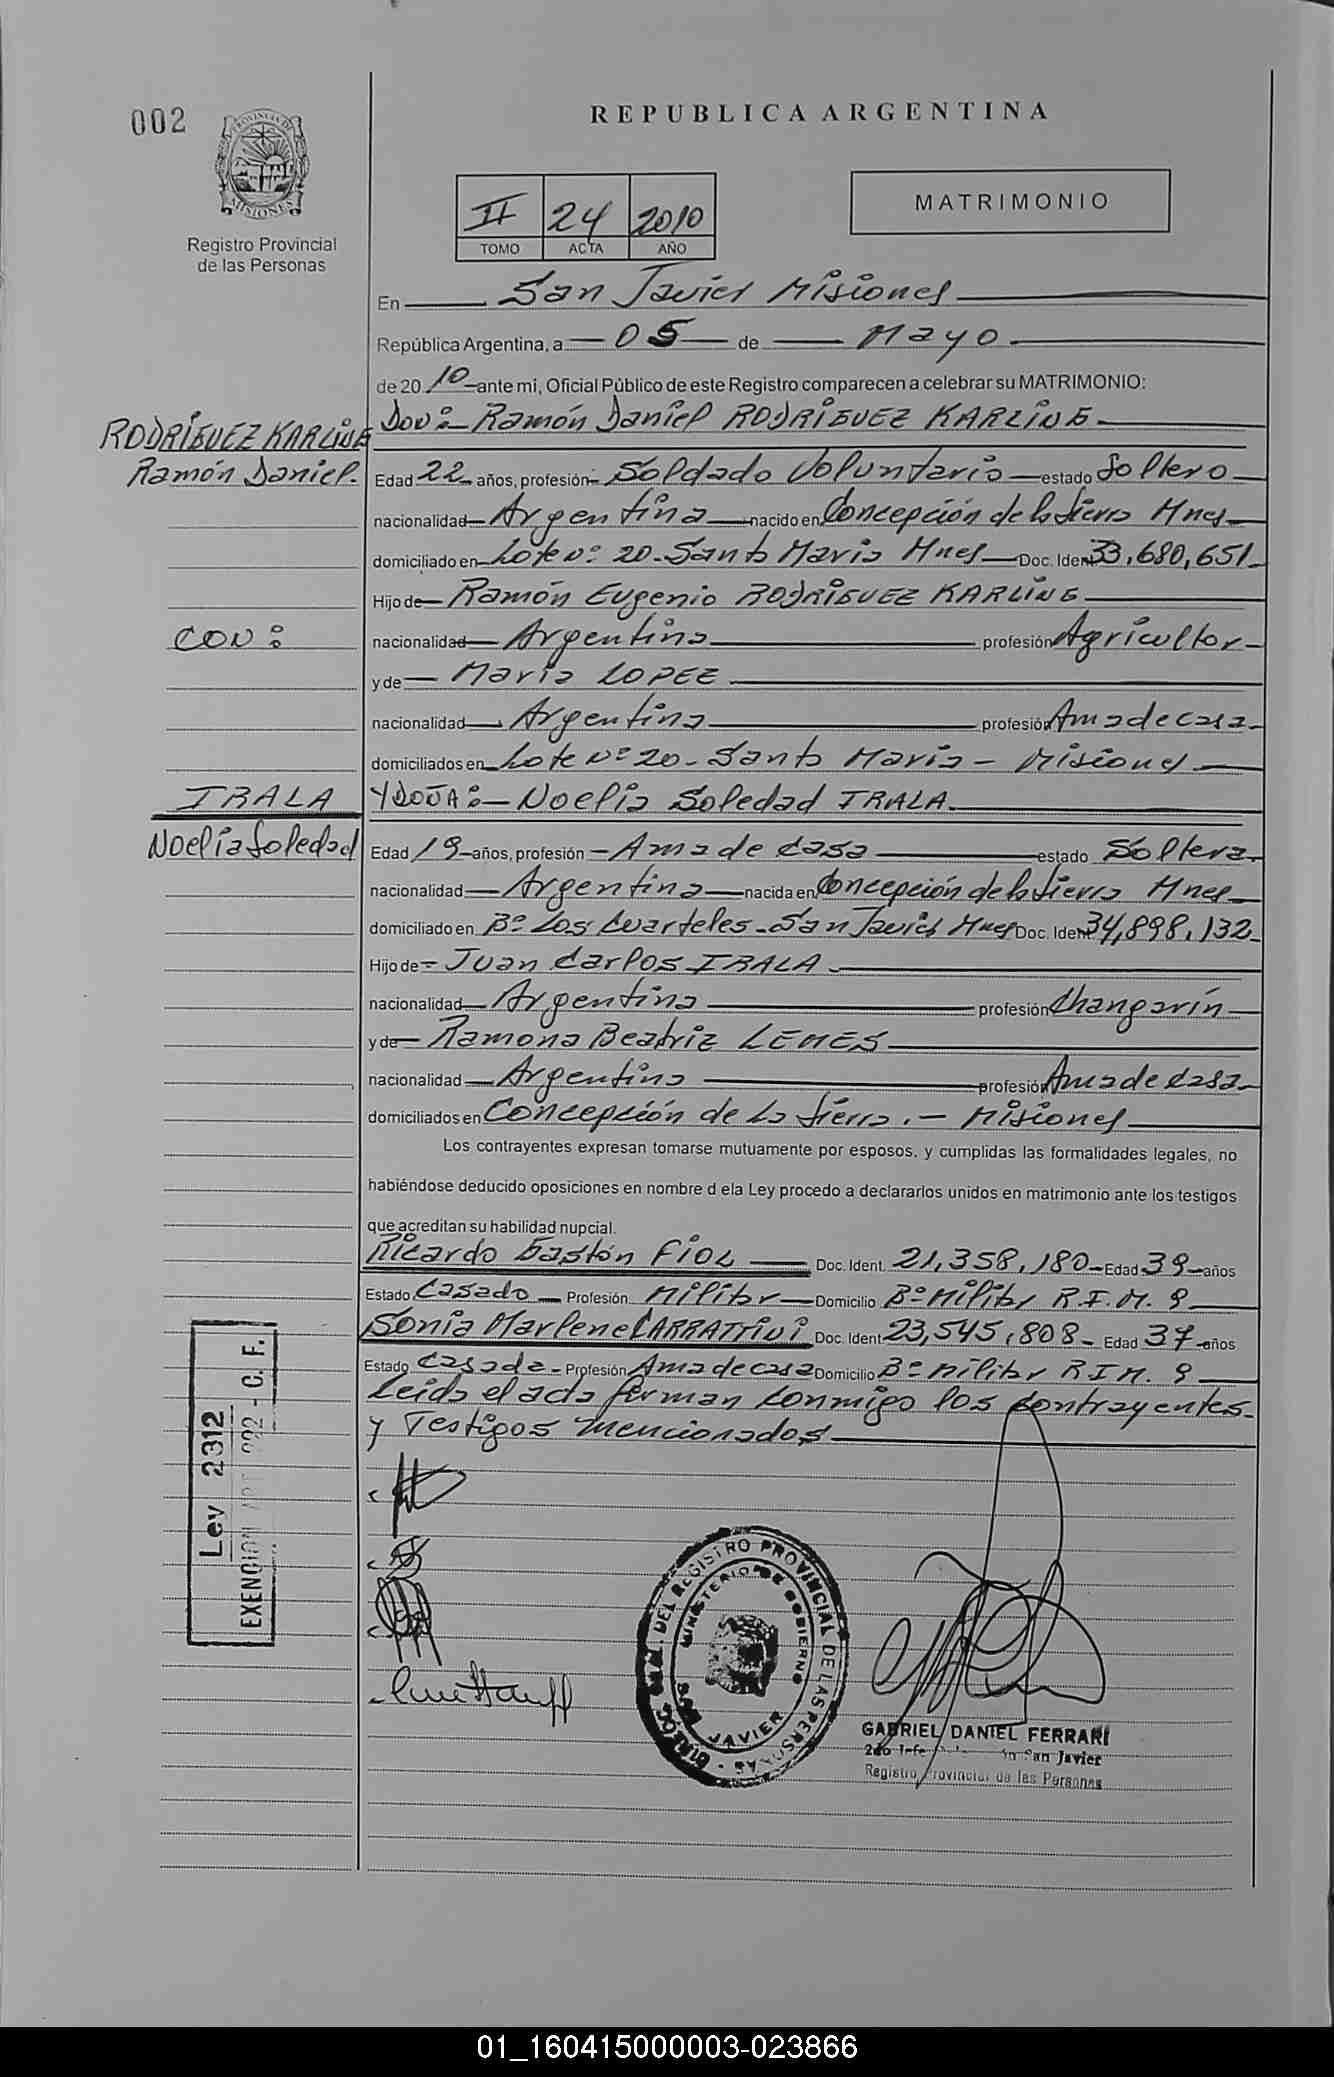 002
REPUBLICA ARGENTINA
PROVINCIA DE MISIONES
Registro Provincial
de las Personas
II 24 2010
TOMO ACTA AÑO
MATRIMONIO
En San Javier Misiones
República Argentina, a 05 de Mayo
de 20 10 ante mi, Oficial Público de este Registro comparecen a celebrar su MATRIMONIO:
RODRIGUEZ KARLING
Ramón Daniel.
CON:
IRALA
Noelia Soledad
DON:- Ramón Daniel RODRIGUEZ KARLING
Edad 22 años, profesión Soldado Voluntario estado Soltero
nacionalidad Argentina nacido en Concepción de la Sierra Mnes
domiciliado en Lote Nº 20-Santa María Mnes Doc. Ident 33,680,651
Hijo de Ramón Eugenio RODRIGUEZ KARLING
nacionalidad Argentina profesión Agricultor
y de María LOPEZ
nacionalidad Argentina profesión Ama de casa
domiciliados en Lote Nº 20- Santa María - Misiones
Y DOÑA:- Noelia Soledad IRALA
Edad 19 años, profesión - Ama de casa estado Soltera
nacionalidad Argentina nacida en Concepción de la Sierra Mnes
domiciliado en Bº Los Cuarteles-San Javier Mnes Doc. Ident 34,898,132
Hijo de - Juan Carlos IRALA
nacionalidad Argentina profesión Changarín
y de Ramona Beatriz LEMES
nacionalidad Argentina profesión Ama de casa
domiciliados en Concepción de la Sierra.- Misiones
Los contrayentes expresan tomarse mutuamente por esposos, y cumplidas las formalidades legales, no
habiéndose deducido oposiciones en nombre d ela Ley procedo a declararlos unidos en matrimonio ante los testigos
que acreditan su habilidad nupcial.
Ricardo Gastón FIOL Doc. Ident. 21,358,180 Edad 39 años
Estado Casado Profesión Militar Domicilio Bº Militar R.I.M. 9
Sonia Marlene CARRATTINI Doc. Ident 23,545,808 - Edad 37 años
Estado Casada - Profesión Ama de casa Domicilio Bº Militar R I M. 9
Leída el acta firman conmigo los contrayentes
y Testigos mencionados
Ley 2312
EXENCION ART 922 - C. F.
DEL REGISTRO PROVINCIAL DE LAS PERSONAS
MINISTERIO DE GOBIERNO
JAVIER
GABRIEL DANIEL FERRARI
2do Jefe San Javier
Registro Provincial de las Personas
01_160415000003-023866